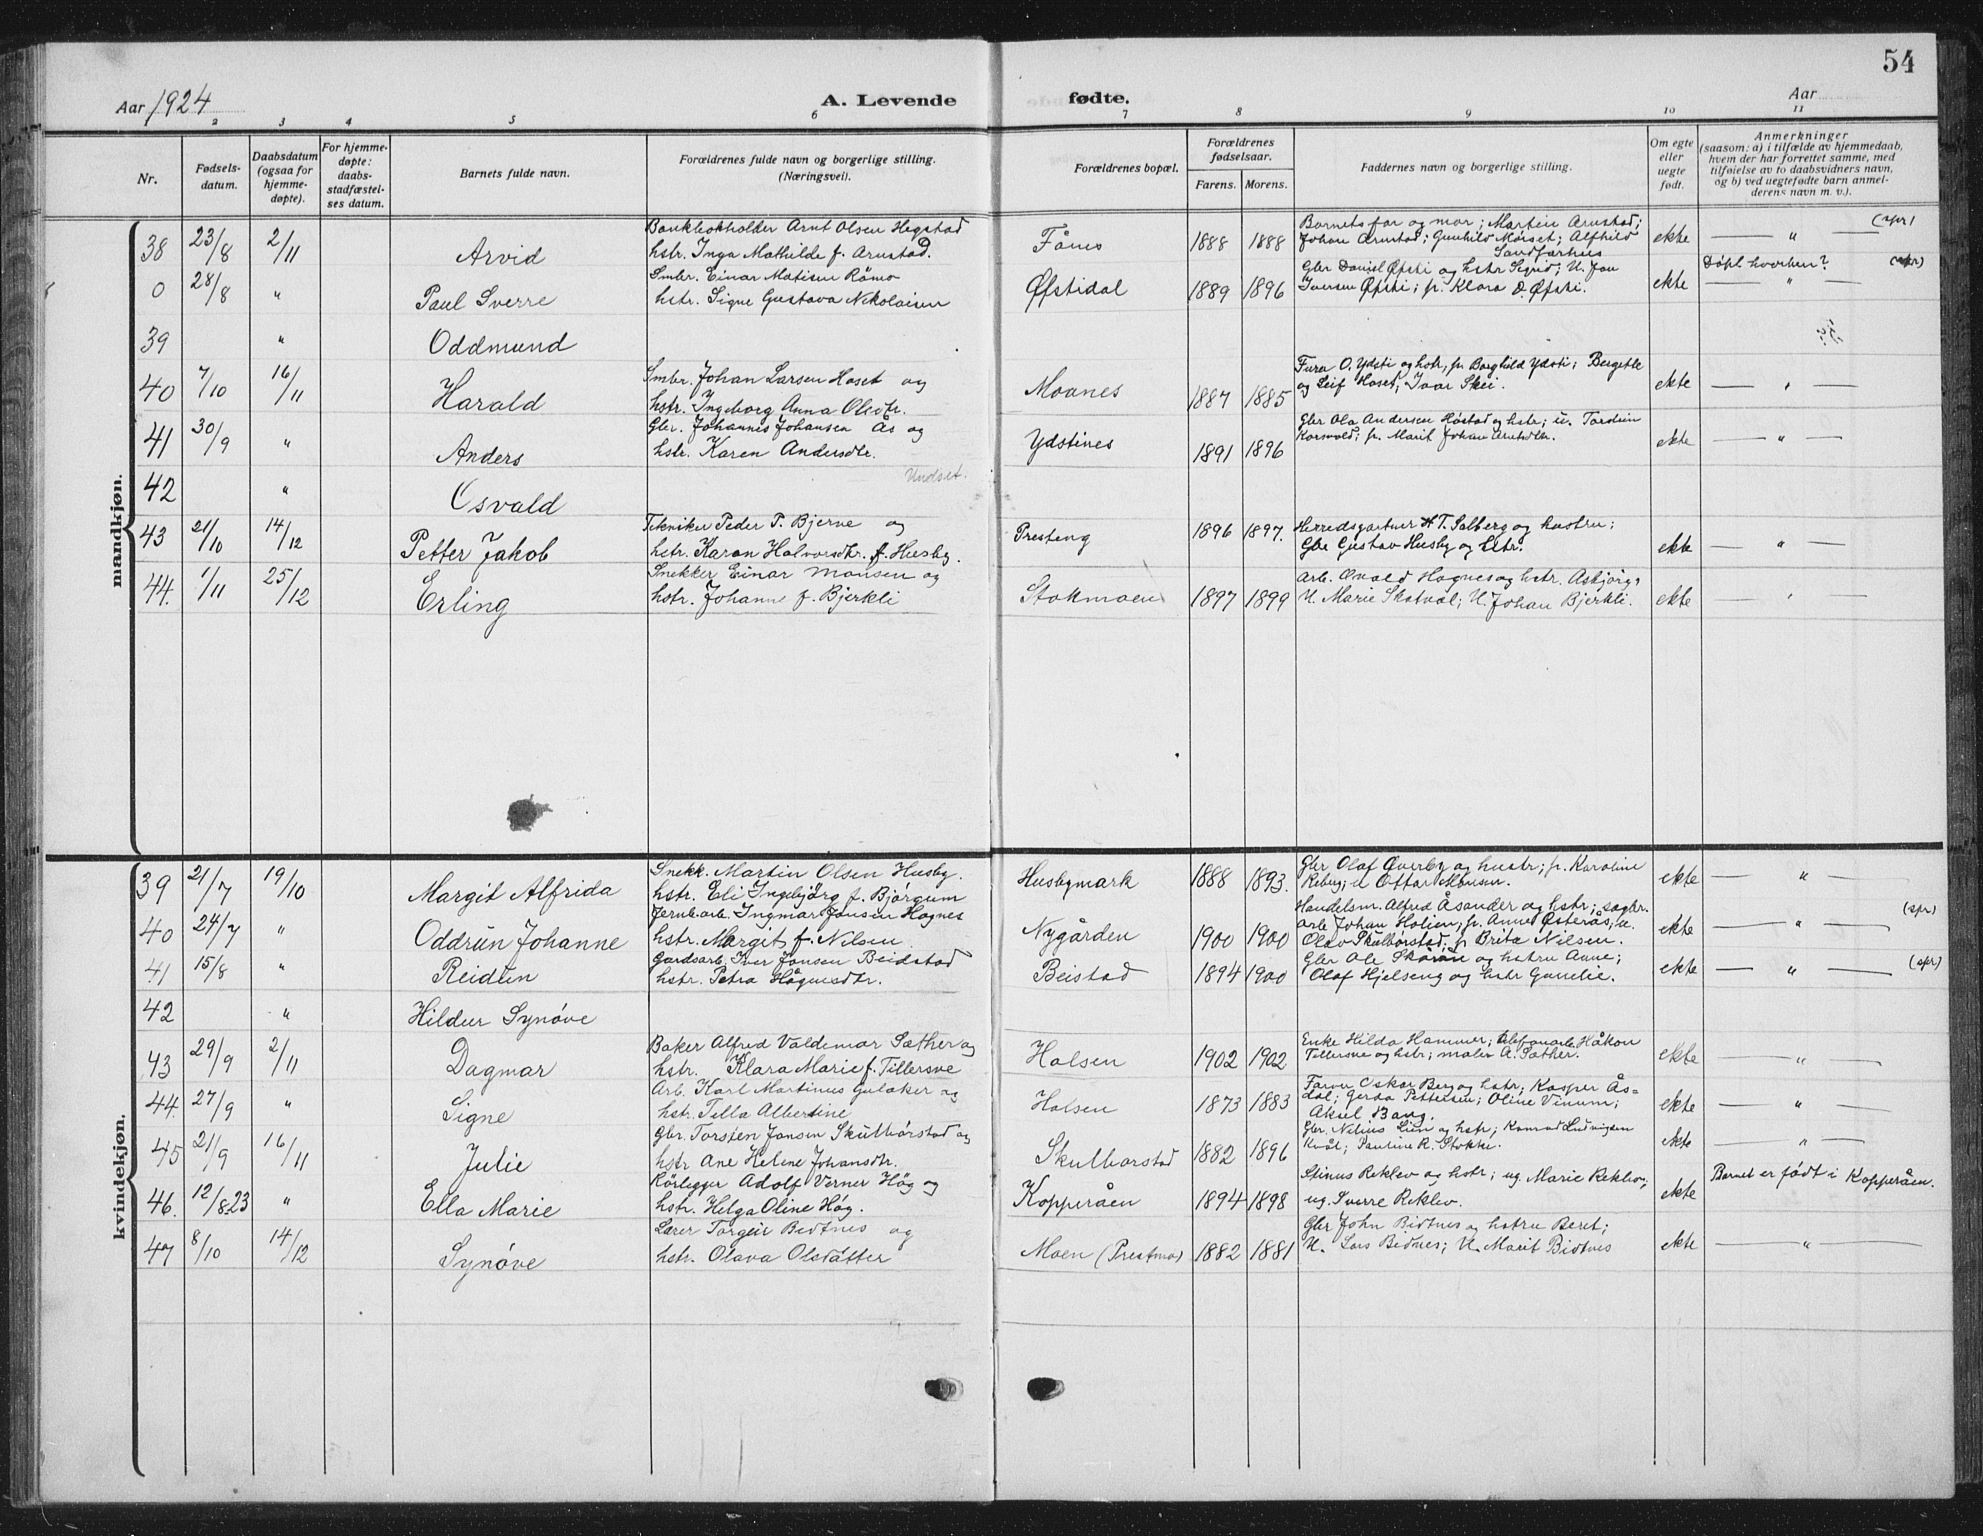 54
Aar 1924 A. Levende fødte. Aar
2 3 4 5 6 7 8 9 10 11
Nr. Fødsels-datum. Daabsdatum (ogsaa for hjemme-døpte). For hjemme-døpte: daabs-stadfæstel-ses datum. Barnets fulde navn. Forældrenes fulde navn og borgerlige stilling. (Næringsvei). Forældrenes bopæl. Forældrenes fødselsaar. Farens. Morens. Faddernes navn og borgerlige stilling. Om egte eller uegte født. Anmerkninger (saasom: a) i tilfælde av hjemmedaab, hvem der har forrettet samme, med tilføielse av to daabsvidners navn, og b) ved uegtefødte barn anmel-derens navn m. v.).
mandkjøn.
38 23/8 2/11 Arvid Bankbokholder Arnt Olsen Hegstad
hstr. Inga Mathilde f. Arnstad. Fånes 1888 1888 Barnets far og mor; Martin Arnstad;
Johan Arnstad; Gunhild Mørset; Alfhild
Sandfærhus ekte — " —
0 28/8 " Paul Sverre Smbr. Einar Matisen Råmo
hstr. Signe Gustava Nikolaisen Øfstidal 1889 1896 Gbr Daniel Øfsti og hstr Sigrid; U. Jon
Iversen Øfsti; pr. Klara D. Øfsti. ekte Døpt hvorhen? — " —
39 " Oddmund
40 7/10 16/11 Harald Smbr. Johan Larsen Haset og
hstr. Ingeborg Anna Olsdtr. Moanes 1887 1885 O. Ydsti og hstr, pr. Borghild Ydsti;
og Leif Haset; Ivar Skei. ekte — " —
41 30/9 " Anders Gbr. Johannes Johansen Ås og
hstr. Karen Andersdtr. Ydstines 1891 1896 Gbr Ola Andersen Høstad og hstr; u. Tordein
Korsvold; pr. Marit Johan ekte — " —
42 " Osvald Undset.
43 21/10 14/12 Petter Jakob Tekniker Peder P. Bjerve og
hstr. Karen Halvorsdtr. f. Husby. Presteng 1896 1897. Herredsgartner H T. Salberg og hustru;
Gbr Gustav Husby og hstr. ekte — " —
44. 1/11 25/12 Erling Snekker Einar Monsen og
hstr. Johanne f. Bjerkli Stokmoen 1897 1899 Arb. Hognes og hstr. Asbjørg,
U. Marie Skatval; U. Johan Bjerkli. ekte — " —
kvindekjøn.
39 21/7 19/10 Margit Alfrida Snekk. Martin Olsen Husby.
hstr. Eli Ingebjørg f. Bjørgum Husbymark 1888 1893. Gbr Olaf Øverby og hustr; pr. Karoline
Reberg; u Ottar Monsen. ekte — " —
40 24/7 " Oddrun Johanne Jernb.arb. Ingmar Jonsen Hognes
hstr. Margit f. Nilsen. Nygården 1900 1900 Handelsm. Alfred Åsander og hstr; sagbr.
arb Johan Holien; pr. Anne Østerås; u.
Olav Skulborstad; pr Brita Nilsen. ekte — " — (spr)
41 15/8 " Reidun Gardsarb. Iver Jonsen Beidstad
hstr. Petra Hågensdtr. Beistad 1894 1900 Gbr Ole og hstru Anne;
Olaf Hjelseng og hstr Gunelie. ekte — " — (spr)
42 " Hildur Synøve
43 29/9 2/11 Dagmar Baker Alfred Valdemar Sæther og
hstr. Klara Marie f. Tillersve Halsen 1902 1902 Enke Hilda Hammer; Håkon
Tillersve og hstr; maler A. Sæther. ekte — " —
44. 27/9 " Signe Arb. Karl Martinus Guldaker og
hstr. Tella Albertine Halsen 1873 1883 Farver Oskar Berg og hstr; Kasper Ås-
dal; Gerda Pettersen; Oline Vinum;
Aksel Bang. ekte — " —
45 21/9 16/11 Julie Gbr. Torsten Jonsen Skulborstad og
hstr Ane Helene Johansdtr. Skulborstad 1882 1896 Gbr. Nilius Lein og hstr; Konrad Ludvigsen
Kvål; Pauline R. Stokke. ekte — " —
46. 12/8 23 " Ella Marie Rørlegger Adolf Verner Høg og
hstr. Helga Oline Høg. Kopperåen 1894 1898 Stinus Reklev og hstr; ug. Marie Reklev;
ug. Sverre Reklev. ekte Barnet er født i Kopperåen.
47 8/10 14/12 Synøve Lærer Torgeir Bidtnes og
hstr. Olava Olsdatter Moen (Prestmo) 1882 1881 Gbr John Bidtnes og hstru Beret;
U. Lars Bidnes; U. Marit Bidtnes ekte — " —